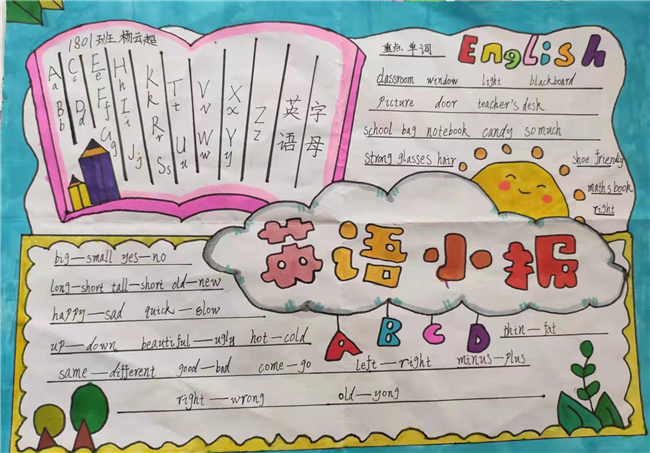 1801班 杨云超
A a B b
C c D d
E e F f G g
H h I i J j
K k R r S s
T t U u
V v W w
X x Y y
Z z
英语
字母
重点 单词 English
classroom window light blackboard
picture door teacher's desk
school bag notebook candy so much
strong glasses hair shoe friendly
maths book
right
英语小报
A B C D
big—small yes—no
long—short tall—short old—new
happy—sad quick—slow
up—down beautiful—ugly hot—cold thin—fat
same—different good—bad come—go left—right minus—plus
right—wrong old—yong